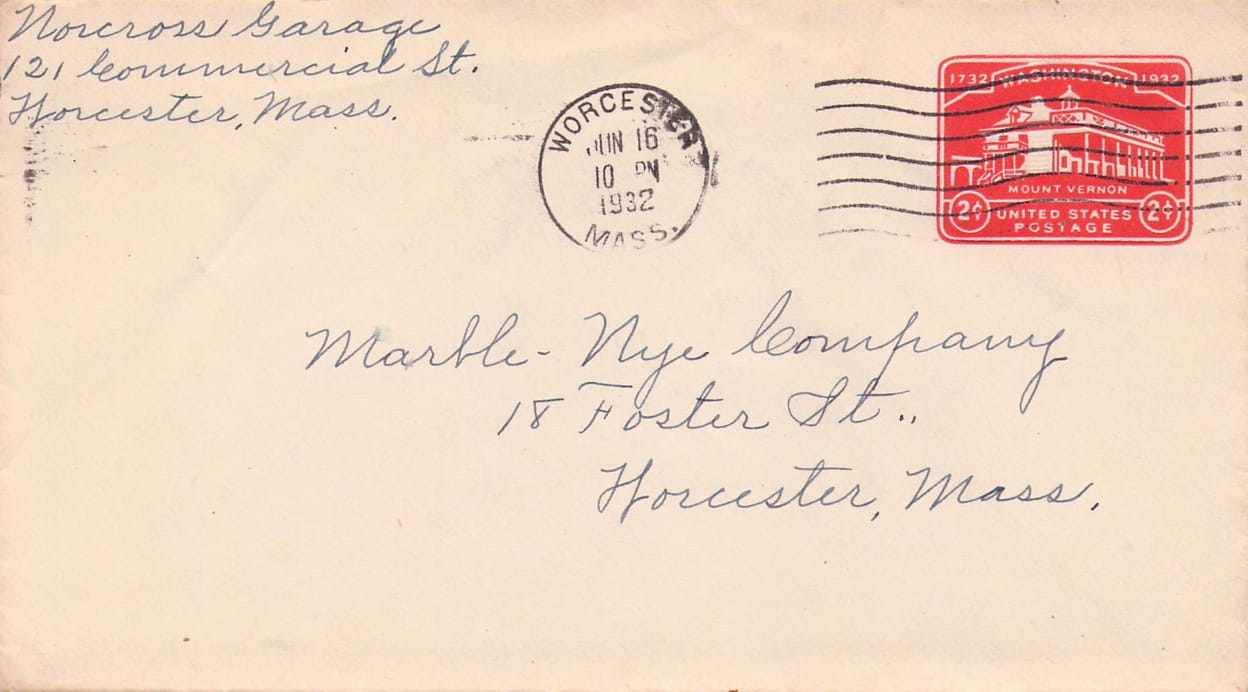 Norcross Garage
121 Commercial St.
Worcester, Mass.
WORCESTER
JUN 16
10 PM
1932
MASS.
1732 WASHINGTON 1932
MOUNT VERNON
2¢ UNITED STATES 2¢
POSTAGE
Marble-Nye Company
18 Foster St.,
Worcester, Mass.